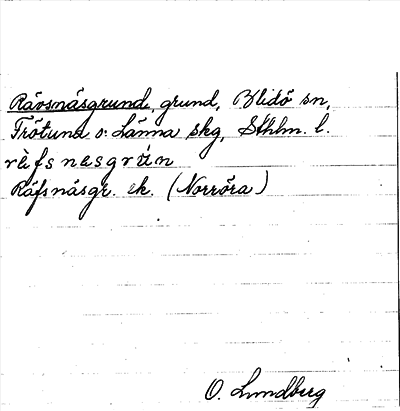 Rävsnäsgrund, grund, Blidö sn,
Frötuna o. Länna skg, Sthlm. l.
rä̀fsnesgrún
Räfsnäsgr. ek. (Norröra)
O. Lundberg